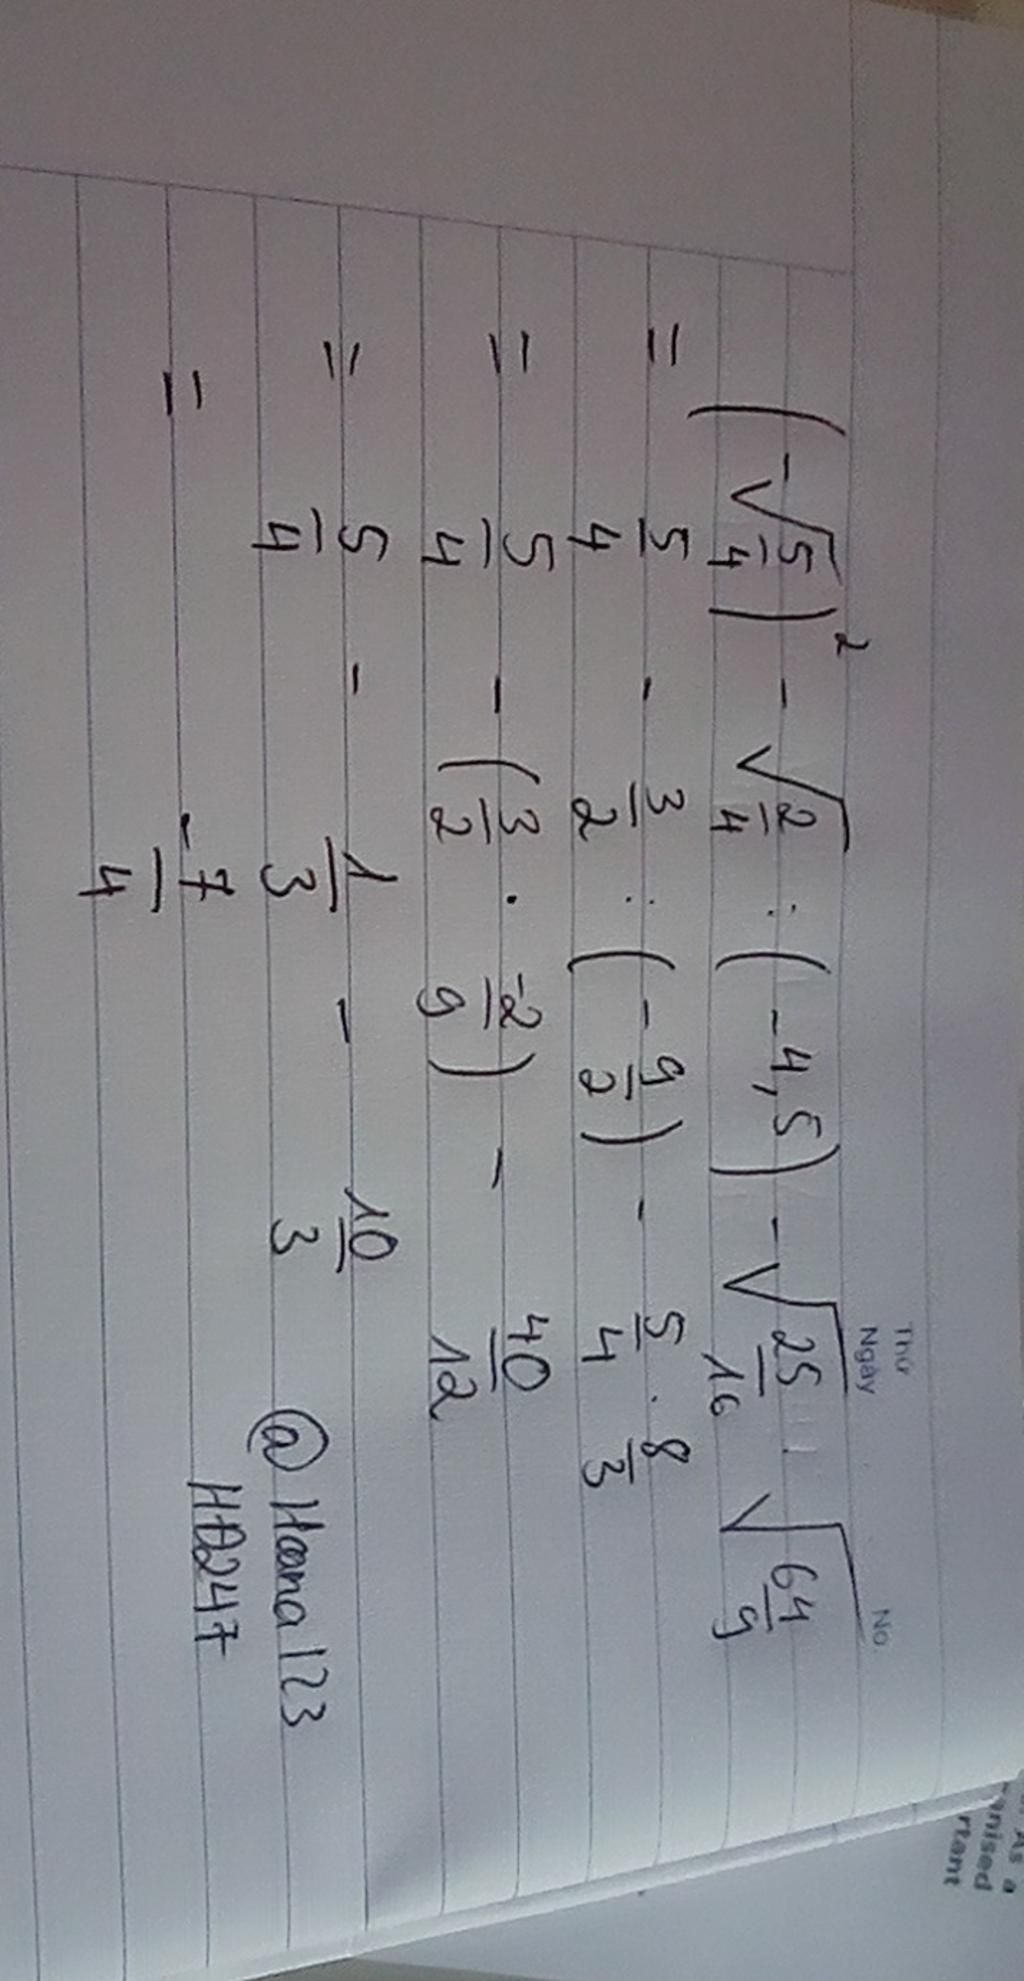 Thứ
Ngày
No.
(-√(5/4))² - √(2/4) : (-4,5) - √(25/16) . √(64/9)
= 5/4 - 3/2 : (-9/2) - 5/4 . 8/3
= 5/4 - (3/2 . -2/9) - 40/12
= 5/4 - 1/3 - 10/3
= -7/4
@Hoana123
HĐ247
As a
anised
rtant